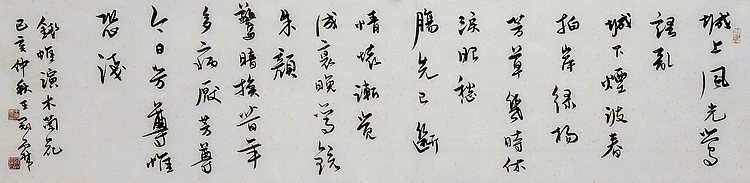 城上風光鶯
語亂
城下煙波春
拍岸綠楊
芳草幾時休
淚眼愁
腸先已斷
情懷漸覺
成衰晚鸞鏡
朱顏
驚暗換昔年
多病厭芳尊
今日芳尊惟
恐淺
錢惟演木蘭花
己亥仲秋王